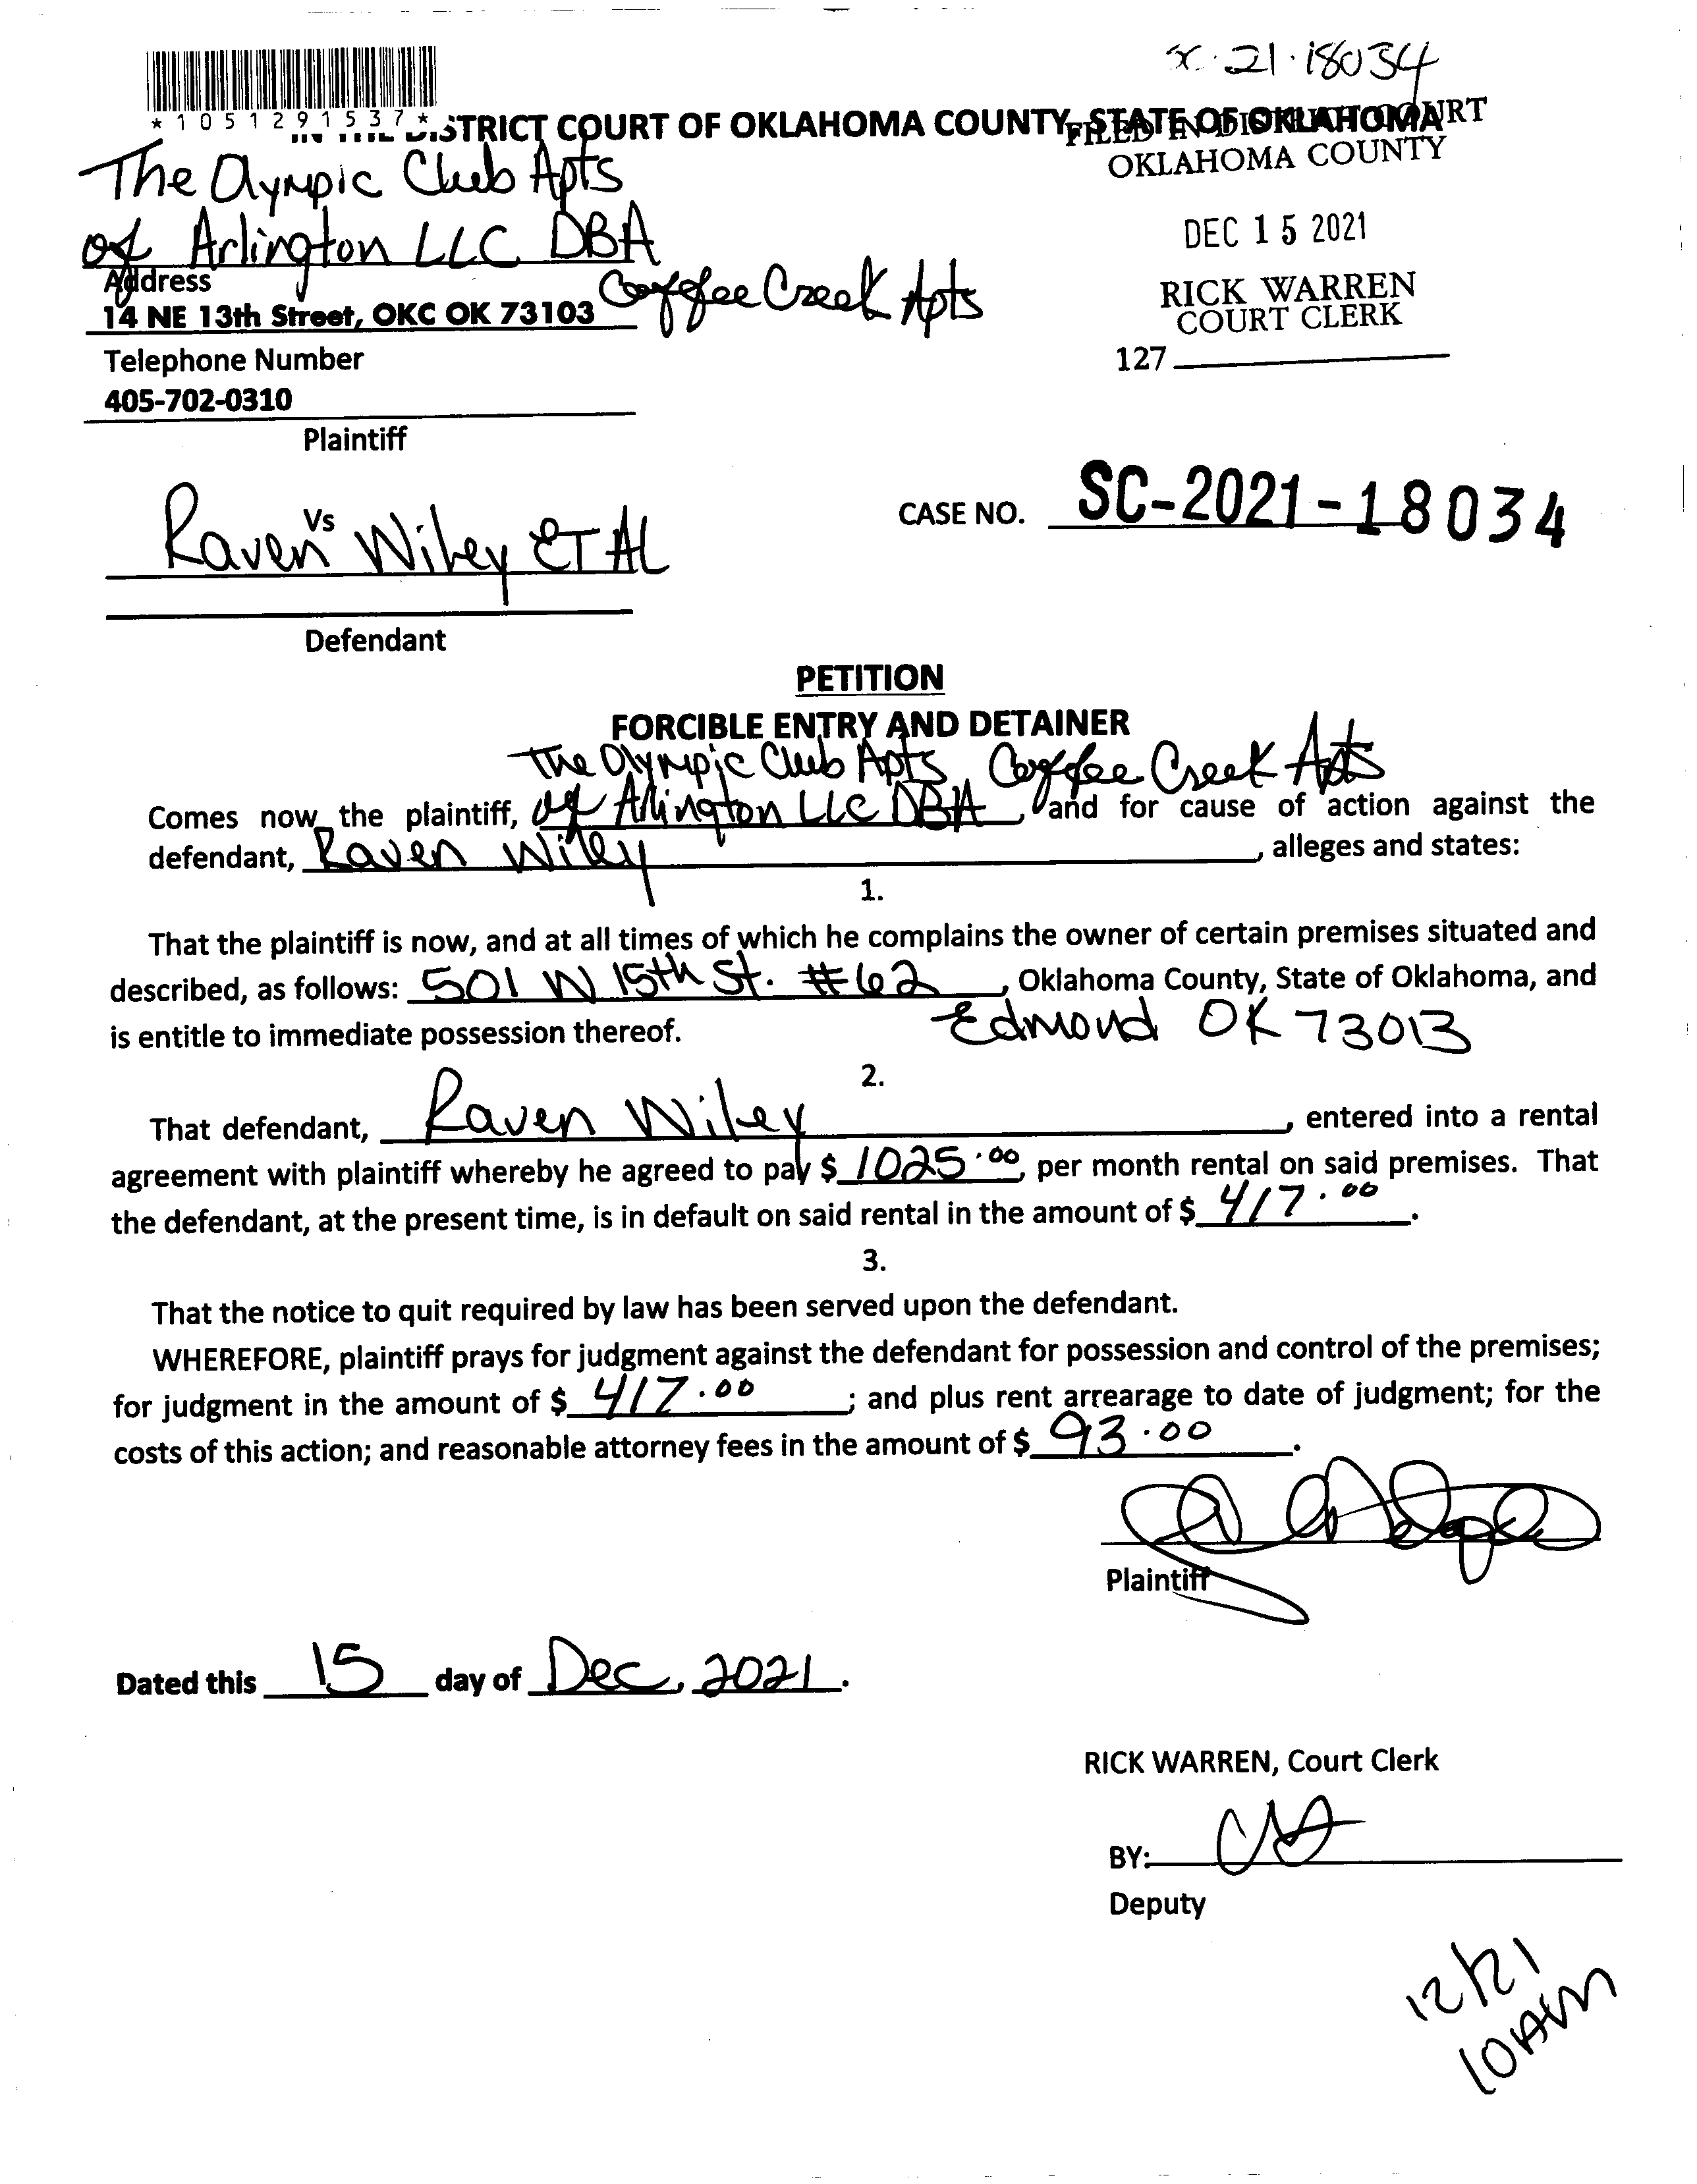 SC-21-18034
*1051291537*
IN THE DISTRICT COURT OF OKLAHOMA COUNTY, STATE OF OKLAHOMA
FILED IN DISTRICT COURT
OKLAHOMA COUNTY
The Olympic Club Apts
of Arlington LLC DBA
DEC 15 2021
Address
Coffee Creek Apts
14 NE 13th Street, OKC OK 73103
RICK WARREN
COURT CLERK
Telephone Number
127
405-702-0310
Plaintiff
Vs
CASE NO. SC-2021-18034
Raven Wiley ET AL
Defendant
PETITION
FORCIBLE ENTRY AND DETAINER
The Olympic Club Apts Coffee Creek Apts
Comes now the plaintiff, of Arlington LLC DBA, and for cause of action against the
defendant, Raven Wiley, alleges and states:
1.
That the plaintiff is now, and at all times of which he complains the owner of certain premises situated and
described, as follows: 501 W 15th St. #62, Oklahoma County, State of Oklahoma, and
is entitle to immediate possession thereof. Edmond OK 73013
2.
That defendant, Raven Wiley, entered into a rental
agreement with plaintiff whereby he agreed to pay $ 1025.00, per month rental on said premises. That
the defendant, at the present time, is in default on said rental in the amount of $ 417.00.
3.
That the notice to quit required by law has been served upon the defendant.
WHEREFORE, plaintiff prays for judgment against the defendant for possession and control of the premises;
for judgment in the amount of $ 417.00; and plus rent arrearage to date of judgment; for the
costs of this action; and reasonable attorney fees in the amount of $ 93.00.
Plaintiff
Dated this 15 day of Dec, 2021.
RICK WARREN, Court Clerk
BY:
Deputy
12/21
10AM